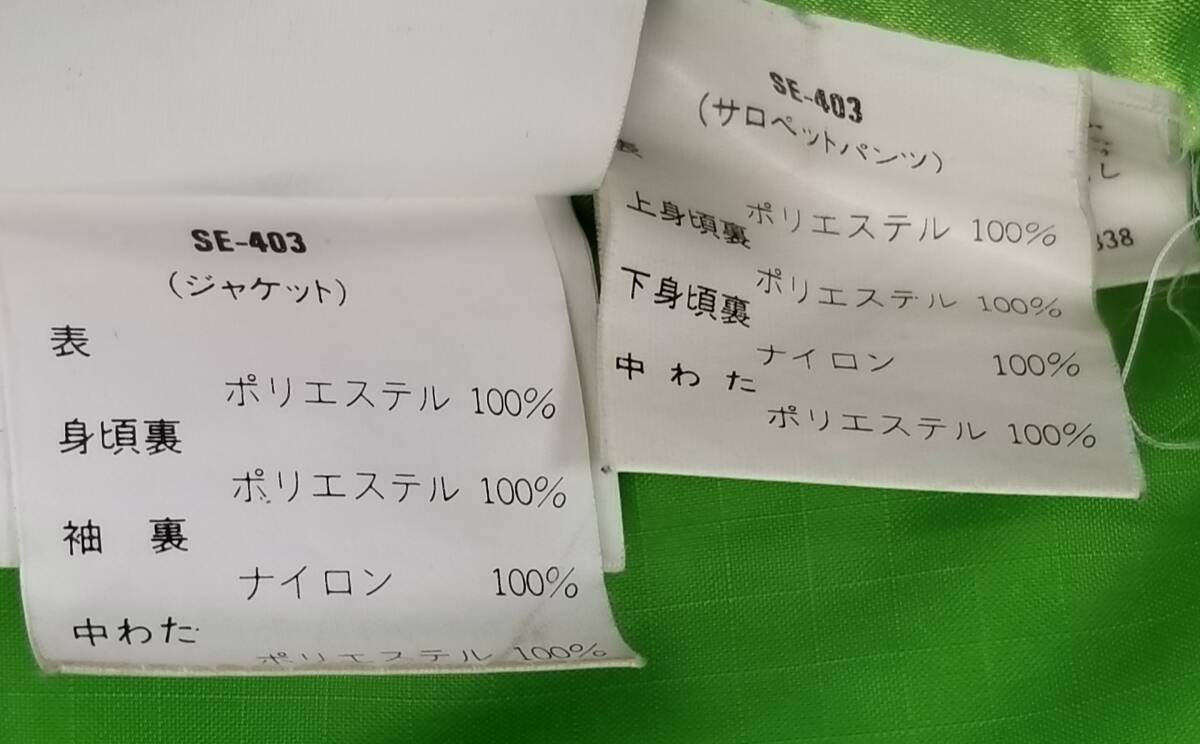 SE-403
(ジャケット)
表
ポリエステル 100%
身頃裏
ポリエステル 100%
袖 裏
ナイロン 100%
中わた
ポリエステル 100%
SE-403
(サロペットパンツ)
表
ポリエステル 100%
上身頃裏
ポリエステル 100%
下身頃裏
ナイロン 100%
中わた
ポリエステル 100%
し
338